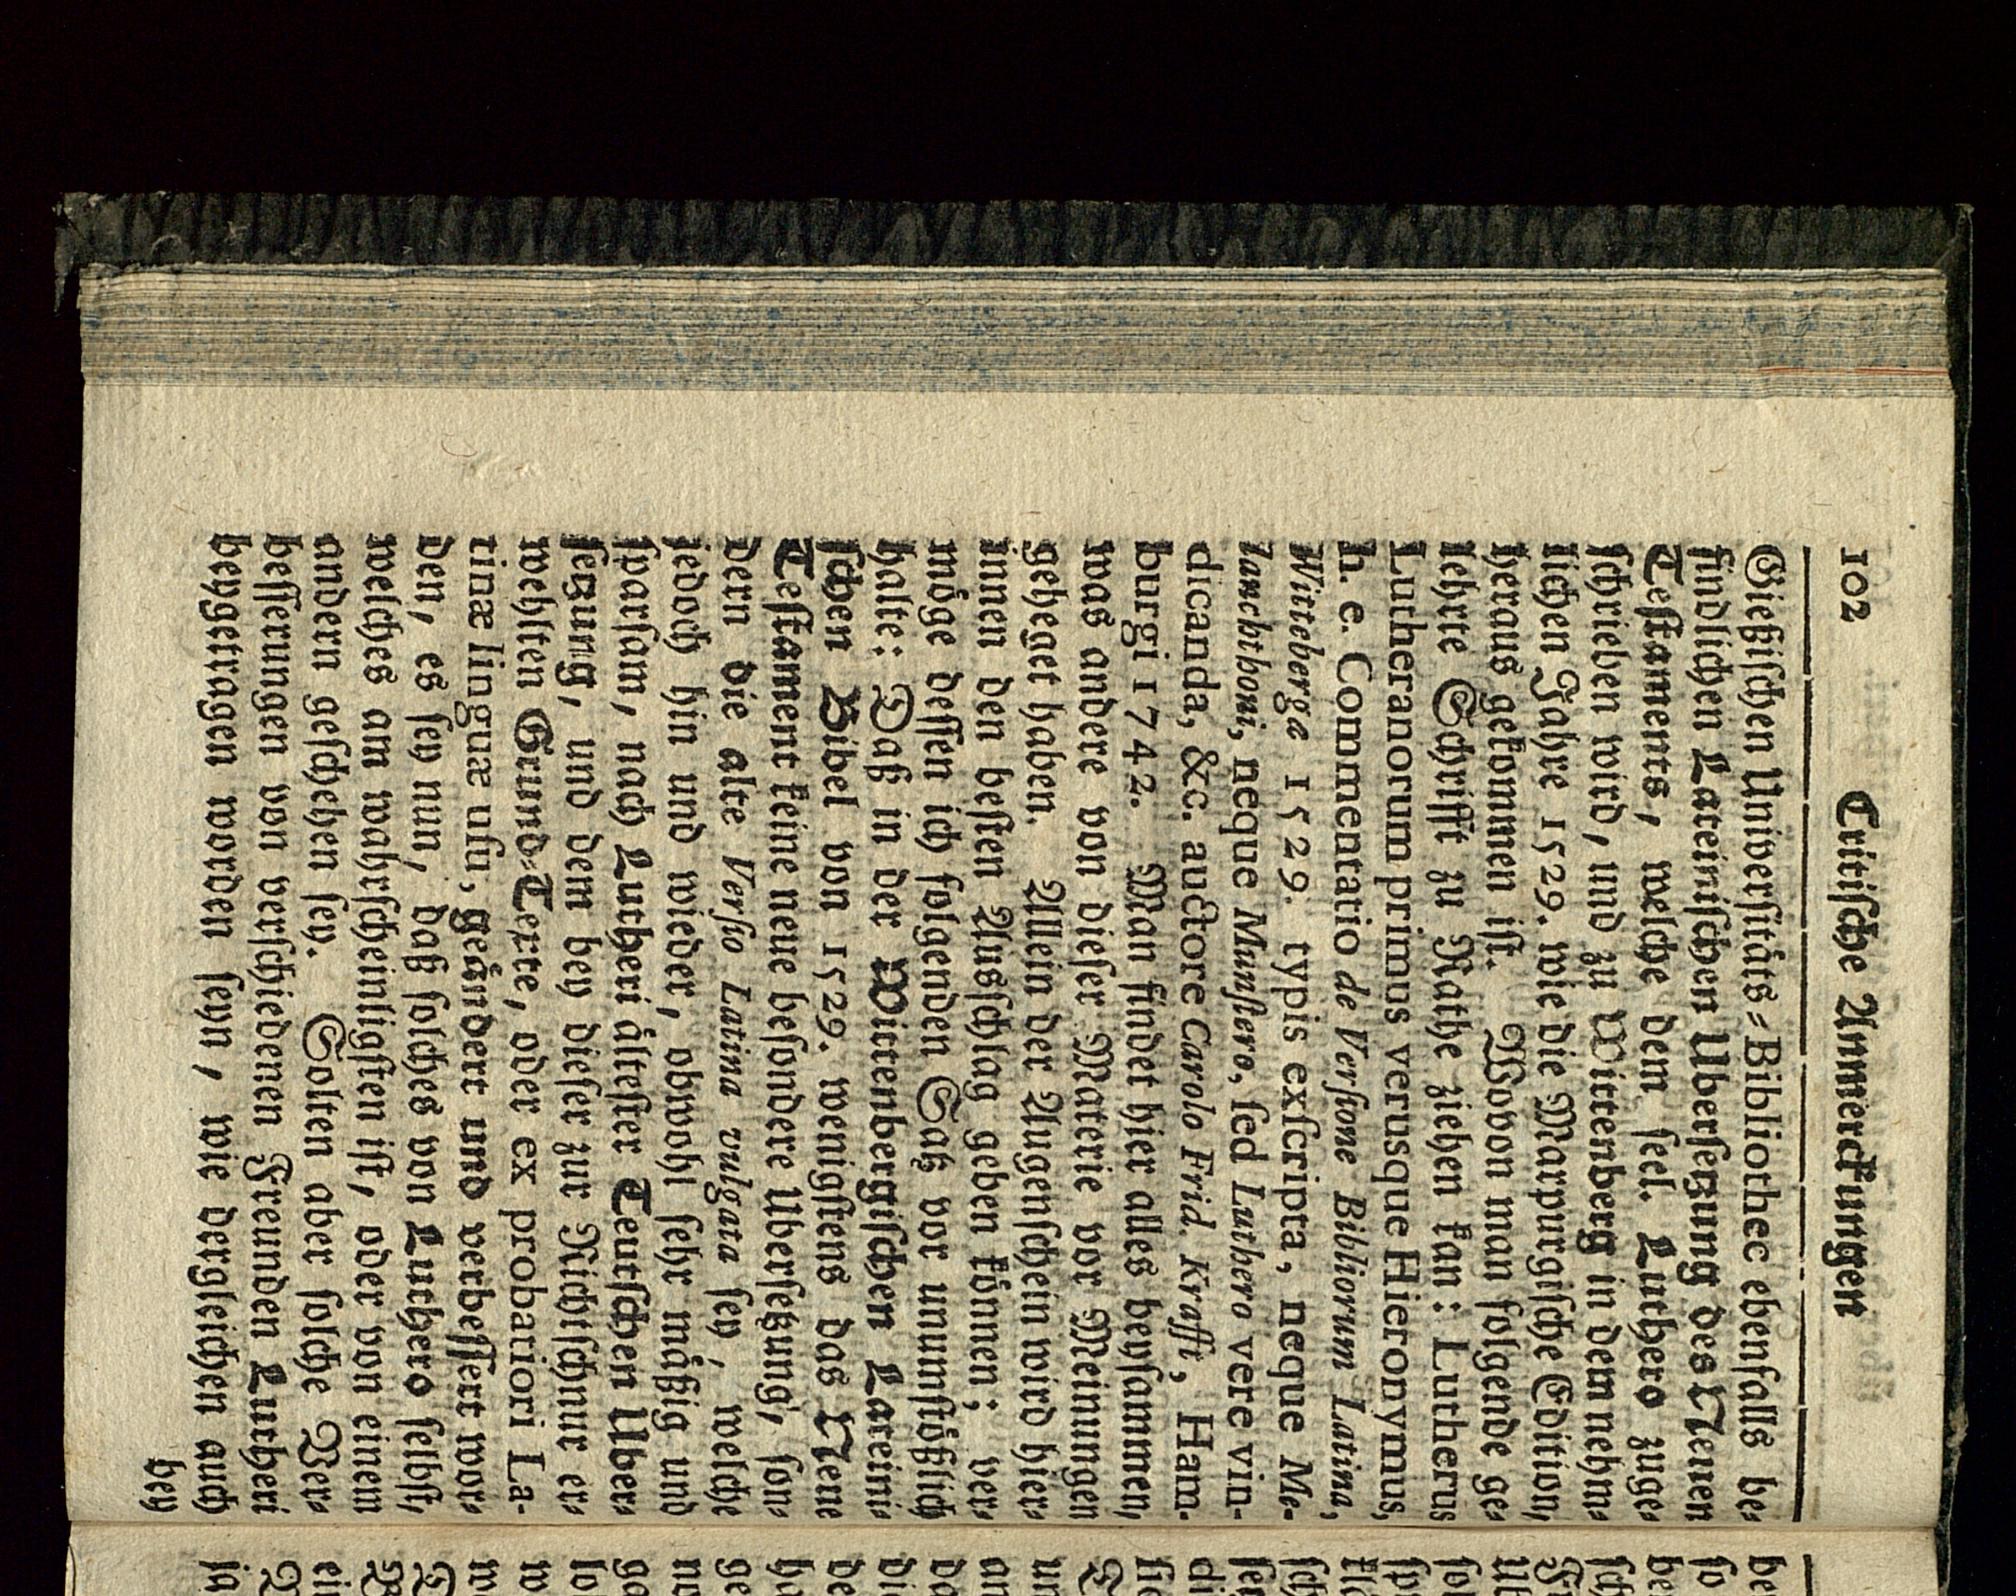 102 Critische Anmerckungen
Gießischen Universitäts-Bibliothec ebenfalls be-
findlichen Lateinischen Ubersetzung des Neuen
Testaments, welche dem seel. Luthero zuge-
schrieben wird, und zu Wittenberg in dem nehm-
lichen Jahre 1529. wie die Marpurgische Edition,
heraus gekommen ist. Wovon man folgende ge-
lehrte Schrifft zu Rathe ziehen kan: Lutherus
Lutheranorum primus verusque Hieronymus,
h. e. Commentatio de Versione Bibliorum Latina,
Wittebergæ 1529. typis exscripta, neque Me-
lanchthoni, neque Munstero, sed Luthero vere vin-
dicanda, &c. auctore Carolo Frid. Krafft, Ham-
burgi 1742. Man findet hier alles beysammen,
was andere von dieser Materie vor Meinungen
geheget haben. Allein der Augenschein wird hier-
innen den besten Ausschlag geben können; ver-
möge dessen ich folgenden Satz vor unumstößlich
halte: Daß in der Wittenbergischen Lateini-
schen Bibel von 1529. wenigstens das Neue
Testament keine neue besondere Ubersetzung, son-
dern die alte Versio Latina vulgata sey, welche
jedoch hin und wieder, obwohl sehr mäßig und
sparsam, nach Lutheri ältester Teutschen Uber-
setzung, und dem bey dieser zur Richtschnur er-
wehlten Grund-Texte, oder ex probatiori La-
tinæ linguæ usu, geändert und verbessert wor-
den, es sey nun, daß solches von Luthero selbst,
welches am wahrscheinligsten ist, oder von einem
andern geschehen sey. Solten aber solche Ver-
besserungen von verschiedenen Freunden Lutheri
beygetragen worden seyn, wie dergleichen auch
bey